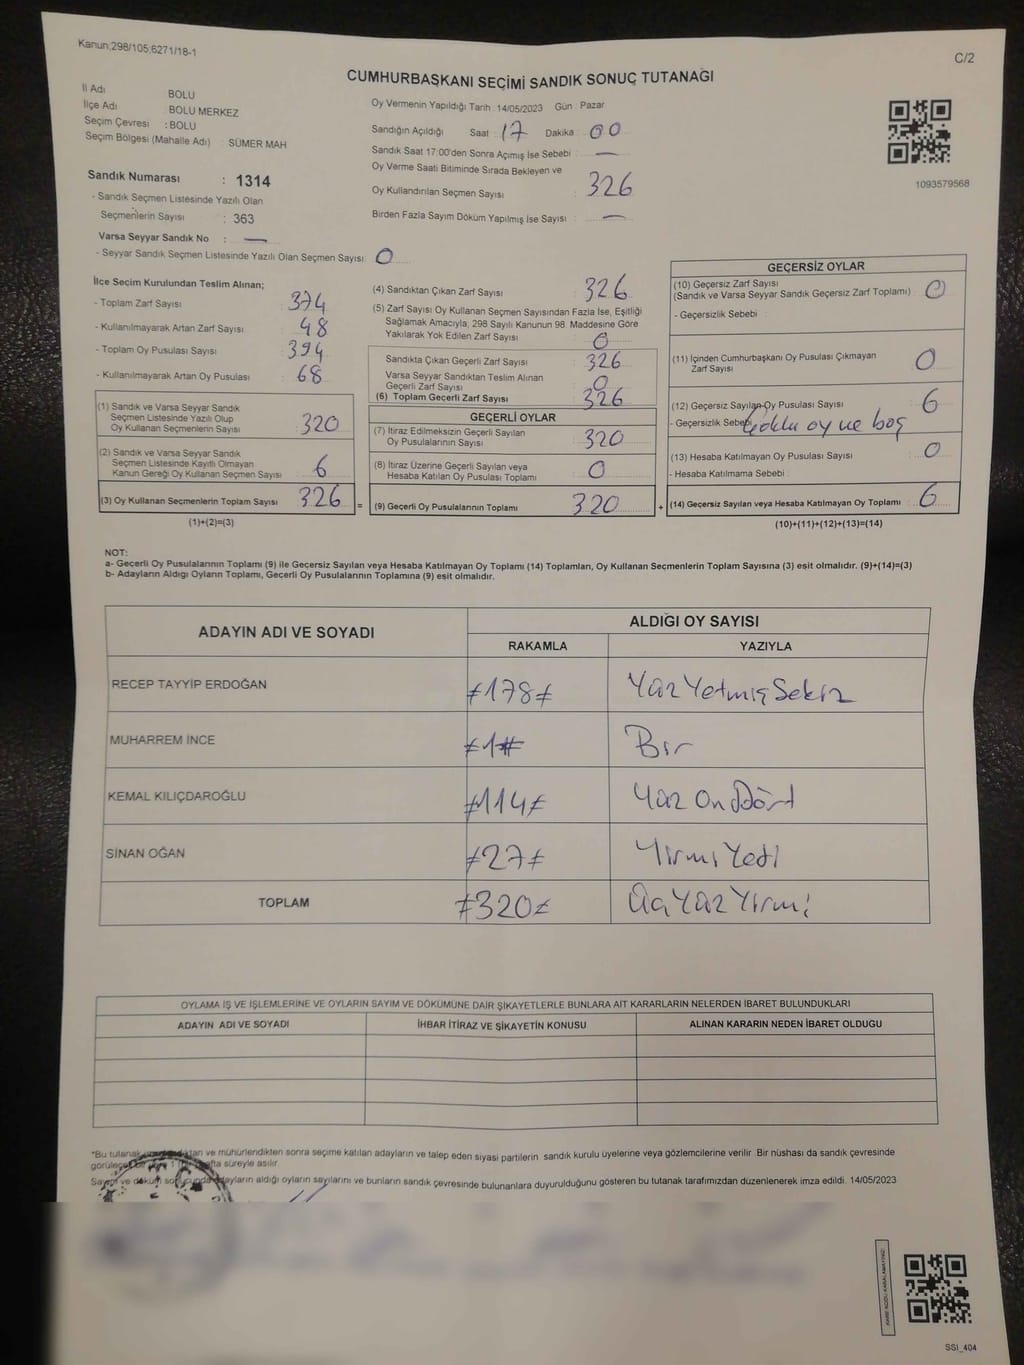 Kanun;298/105;6271/18-1
C/2
CUMHURBAŞKANI SEÇİMİ SANDIK SONUÇ TUTANAĞI
İl Adı BOLU
İlçe Adı BOLU MERKEZ
Seçim Çevresi : BOLU
Seçim Bölgesi (Mahalle Adı) : SÜMER MAH
Sandık Numarası : 1314
- Sandık Seçmen Listesinde Yazılı Olan
Seçmenlerin Sayısı : 363
Varsa Seyyar Sandık No : —
- Seyyar Sandık Seçmen Listesinde Yazılı Olan Seçmen Sayısı 0
Oy Vermenin Yapıldığı Tarih : 14/05/2023 Gün : Pazar
Sandığın Açıldığı Saat : 17 Dakika : 00
Sandık Saat 17:00'den Sonra Açımış İse Sebebi : —
Oy Verme Saati Bitiminde Sırada Bekleyen ve
Oy Kullandırılan Seçmen Sayısı : 326
Birden Fazla Sayım Döküm Yapılmış İse Sayısı : —
1093579568
İlçe Seçim Kurulundan Teslim Alınan;
- Toplam Zarf Sayısı : 374
- Kullanılmayarak Artan Zarf Sayısı : 48
- Toplam Oy Pusulası Sayısı : 394
- Kullanılmayarak Artan Oy Pusulası : 68
(1) Sandık ve Varsa Seyyar Sandık
Seçmen Listesinde Yazılı Olup
Oy Kullanan Seçmenlerin Sayısı : 320
(2) Sandık ve Varsa Seyyar Sandık
Seçmen Listesinde Kayıtlı Olmayan
Kanun Gereği Oy Kullanan Seçmen Sayısı : 6
(3) Oy Kullanan Seçmenlerin Toplam Sayısı : 326 =
(1)+(2)=(3)
(4) Sandıktan Çıkan Zarf Sayısı : 326
(5) Zarf Sayısı Oy Kullanan Seçmen Sayısından Fazla İse, Eşitliği
Sağlamak Amacıyla, 298 Sayılı Kanunun 98. Maddesine Göre
Yakılarak Yok Edilen Zarf Sayısı : 0
Sandıkta Çıkan Geçerli Zarf Sayısı : 326
Varsa Seyyar Sandıktan Teslim Alınan
Geçerli Zarf Sayısı : 0
(6) Toplam Geçerli Zarf Sayısı : 326
GEÇERLİ OYLAR
(7) İtiraz Edilmeksizin Geçerli Sayılan
Oy Pusulalarının Sayısı : 320
(8) İtiraz Üzerine Geçerli Sayılan veya
Hesaba Katılan Oy Pusulası Toplamı : 0
(9) Geçerli Oy Pusulalarının Toplamı : 320 +
GEÇERSİZ OYLAR
(10) Geçersiz Zarf Sayısı
(Sandık ve Varsa Seyyar Sandık Geçersiz Zarf Toplamı) : 0
- Geçersizlik Sebebi :
(11) İçinden Cumhurbaşkanı Oy Pusulası Çıkmayan
Zarf Sayısı : 0
(12) Geçersiz Sayılan Oy Pusulası Sayısı : 6
- Geçersizlik Sebebi oy ve boş
(13) Hesaba Katılmayan Oy Pusulası Sayısı : 0
- Hesaba Katılmama Sebebi :
(14) Geçersiz Sayılan veya Hesaba Katılmayan Oy Toplamı : 6
(10)+(11)+(12)+(13)=(14)
NOT:
a- Geçerli Oy Pusulalarının Toplamı (9) ile Geçersiz Sayılan veya Hesaba Katılmayan Oy Toplamı (14) Toplamları, Oy Kullanan Seçmenlerin Toplam Sayısına (3) eşit olmalıdır. (9)+(14)=(3)
b- Adayların Aldığı Oyların Toplamı, Geçerli Oy Pusulalarının Toplamına (9) eşit olmalıdır.
ADAYIN ADI VE SOYADI ALDIĞI OY SAYISI
RAKAMLA YAZIYLA
RECEP TAYYİP ERDOĞAN ≠178≠ Yüz Yetmiş Sekiz
MUHARREM İNCE ≠1≠ Bir
KEMAL KILIÇDAROĞLU ≠114≠ Yüz On Dört
SİNAN OĞAN ≠27≠ Yirmi Yedi
TOPLAM ≠320≠ Üç Yüz Yirmi
OYLAMA İŞ VE İŞLEMLERİNE VE OYLARIN SAYIM VE DÖKÜMÜNE DAİR ŞİKAYETLERLE BUNLARA AİT KARARLARIN NELERDEN İBARET BULUNDUKLARI
ADAYIN ADI VE SOYADI İHBAR İTİRAZ VE ŞİKAYETİN KONUSU ALINAN KARARIN NEDEN İBARET OLDUĞU
*Bu tutanak ve mühürlendikten sonra seçime katılan adayların ve talep eden siyasi partilerin sandık kurulu üyelerine veya gözlemcilerine verilir. Bir nüshası da sandık çevresinde
süreyle asılır.
Sayım ve döküm adayların aldığı oyların sayılarını ve bunların sandık çevresinde bulunanlara duyurulduğunu gösteren bu tutanak tarafımızdan düzenlenerek imza edildi. 14/05/2023
SSI_404